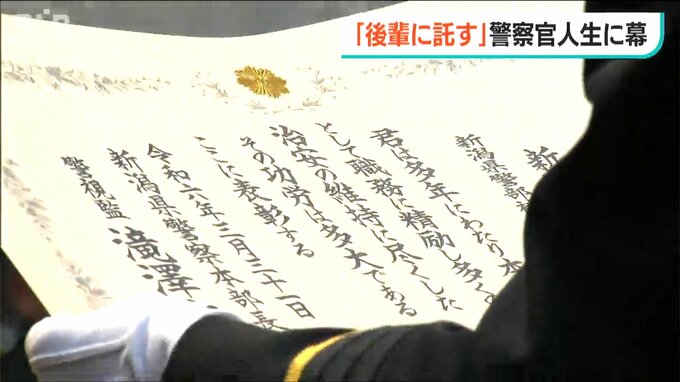 「後輩に託す」警察官人生に幕
新
新潟県警部
君は多年にわたり本
として職務に精励し多くの
治安の維持に尽くした
その功労は多大である
ここに表彰する
令和六年三月三十一日
新潟県警察本部長
警視監 滝澤